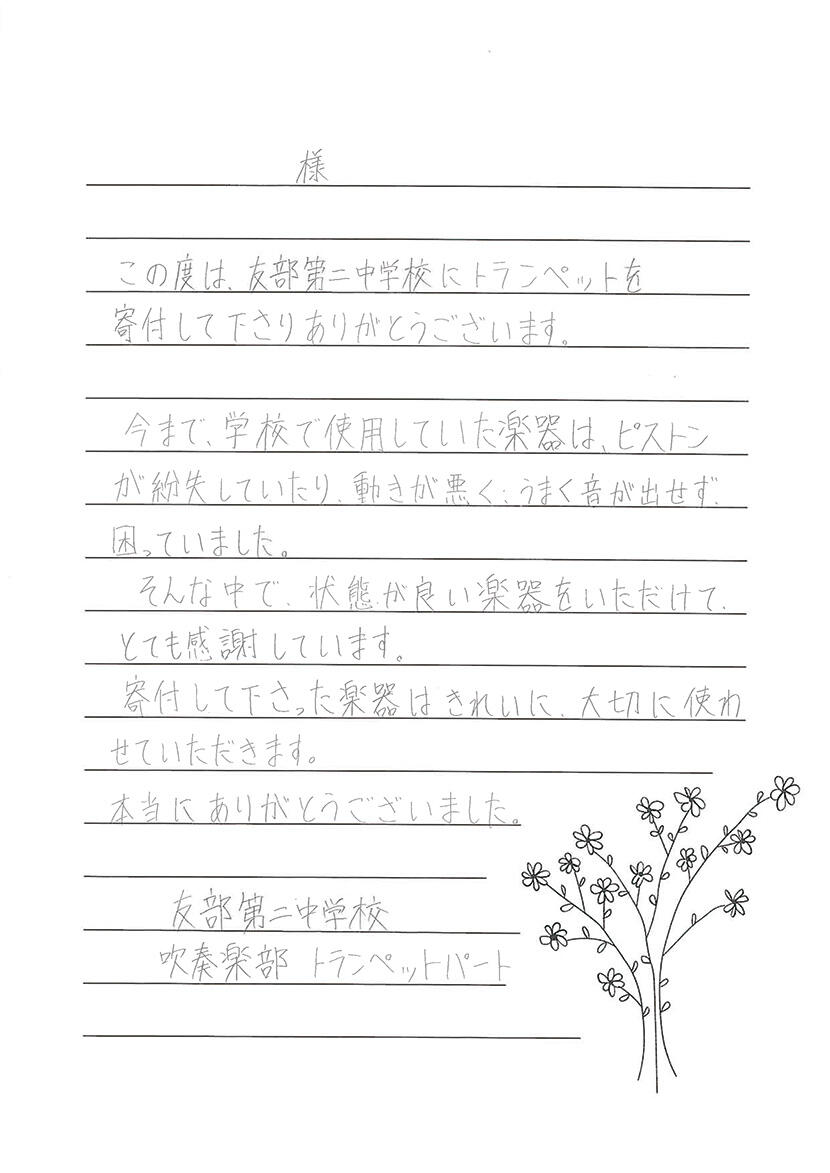 様
この度は、友部第二中学校にトランペットを
寄付して下さりありがとうございます。
今まで、学校で使用していた楽器は、ピストン
が紛失していたり、動きが悪く、うまく音が出せず、
困っていました。
そんな中で、状態が良い楽器をいただけて、
とても感謝しています。
寄付して下さった楽器はきれいに、大切に使わ
せていただきます。
本当にありがとうございました。
友部第二中学校
吹奏楽部 トランペットパート